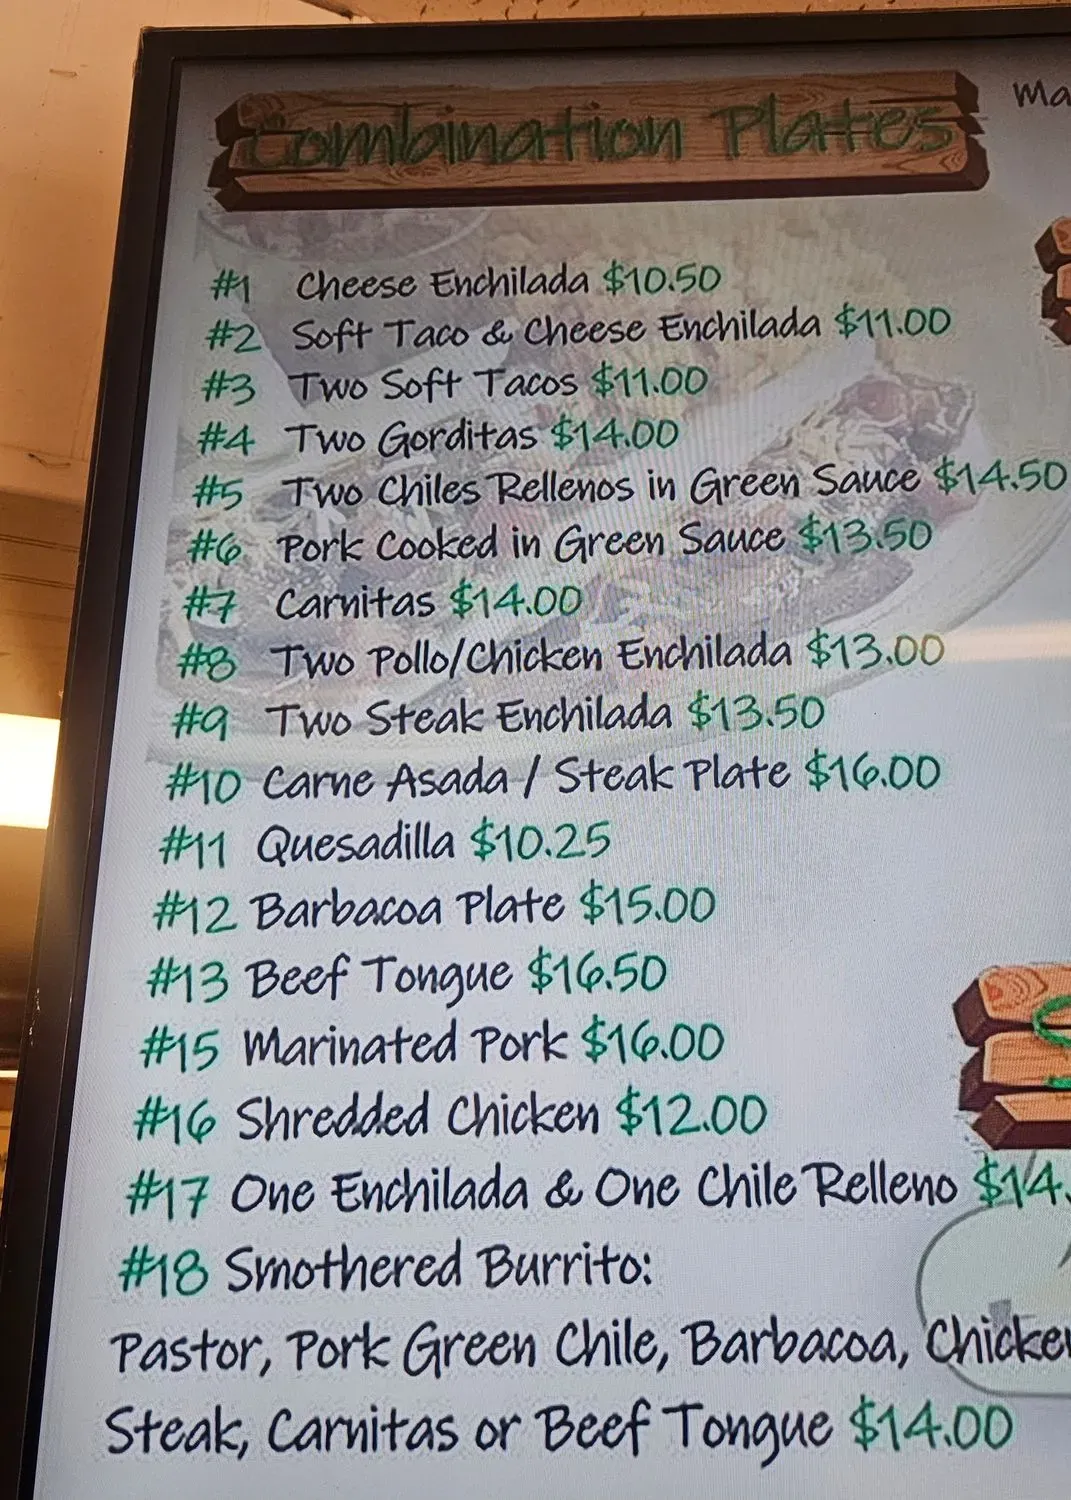 Combination Plates
#1 Cheese Enchilada $10.50
#2 Soft Taco & Cheese Enchilada $11.00
#3 Two Soft Tacos $11.00
#4 Two Gorditas $14.00
#5 Two Chiles Rellenos in Green Sauce $14.50
#6 Pork Cooked in Green Sauce $13.50
#7 Carnitas $14.00
#8 Two Pollo/Chicken Enchilada $13.00
#9 Two Steak Enchilada $13.50
#10 Carne Asada / Steak Plate $16.00
#11 Quesadilla $10.25
#12 Barbacoa Plate $15.00
#13 Beef Tongue $16.50
#15 Marinated Pork $16.00
#16 Shredded Chicken $12.00
#17 One Enchilada & One Chile Relleno $14.
#18 Smothered Burrito:
Pastor, Pork Green Chile, Barbacoa, Chicke
Steak, Carnitas or Beef Tongue $14.00